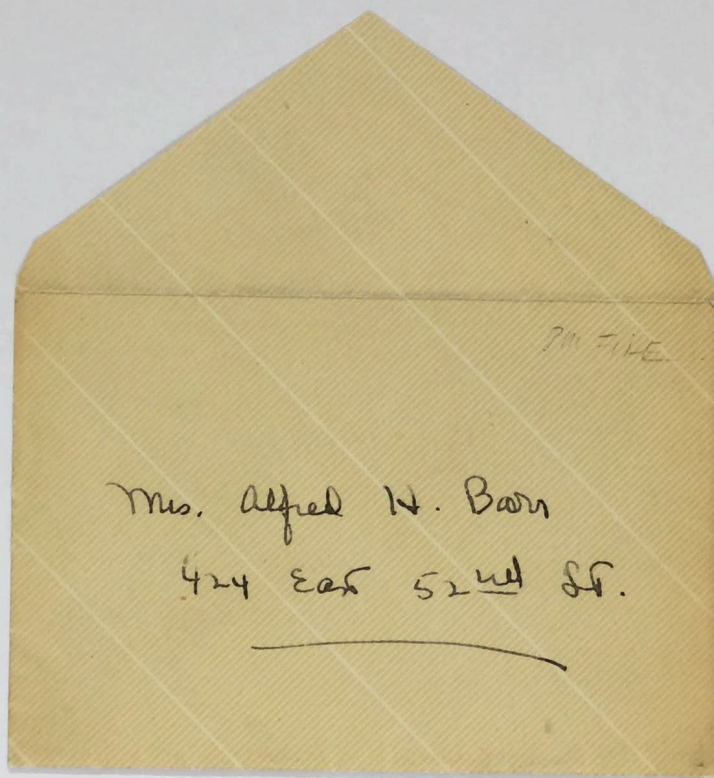 PM FILE
Mrs. Alfred H. Barr
424 East 52nd St.